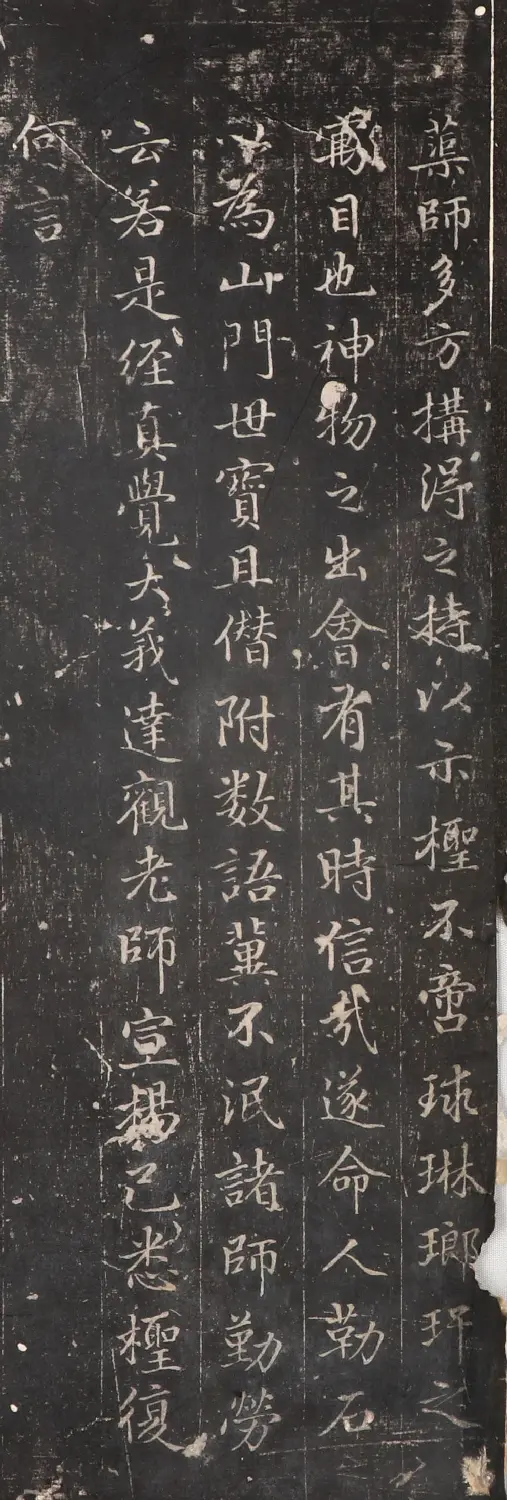 蕖師多方搆淂之持以示檉不啻球琳瑯玕之
寓目也神物之出會有其時信哉遂命人勒石
以為山門世寶且僣附数語冀不泯諸師勤勞
云若是經真覺大義達觀老師宣揚已悉檉復
何言